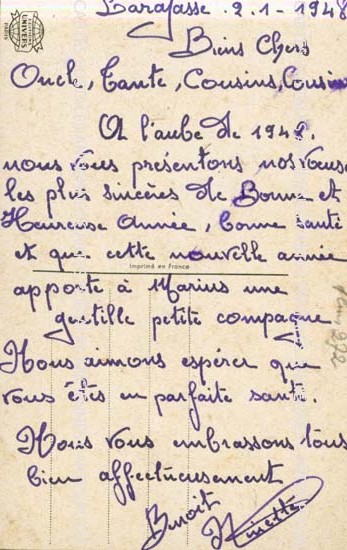 Larajasse . 2.1 - 1948
Biens Chers
Oncle, Tante, Cousins, Cousine
A l'aube de 1948.
nous vous présentons nos voeux
les plus sincères de Bonne et
Heureuse Année, bonne santé
et que cette nouvelle année
Imprimé en France
apporte à Marius une
gentille petite compagne
Nous aimons espérer que
vous êtes en parfaite santé.
Nous vous embrassons tous
bien affectueusement
Benoit
Ninette